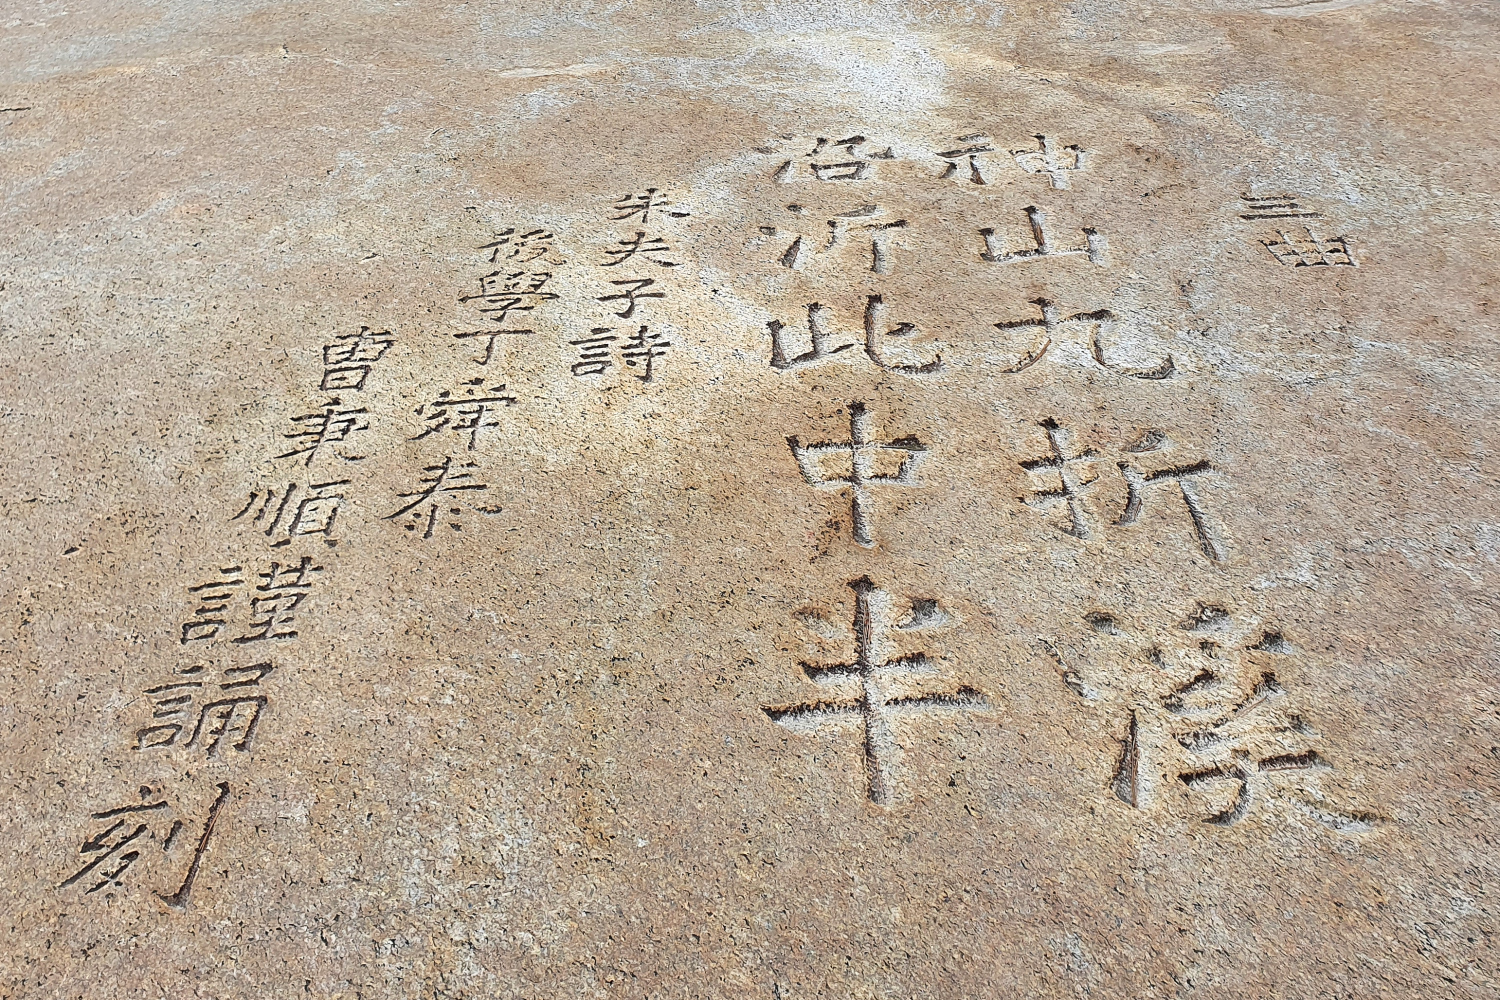 三曲
神山九折溪
沿泝此中半
朱夫子詩
後學丁舜泰
曺秉順謹誦刻